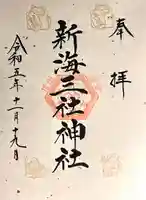 奉拝
新海三社神社
令和五年十一月十九日